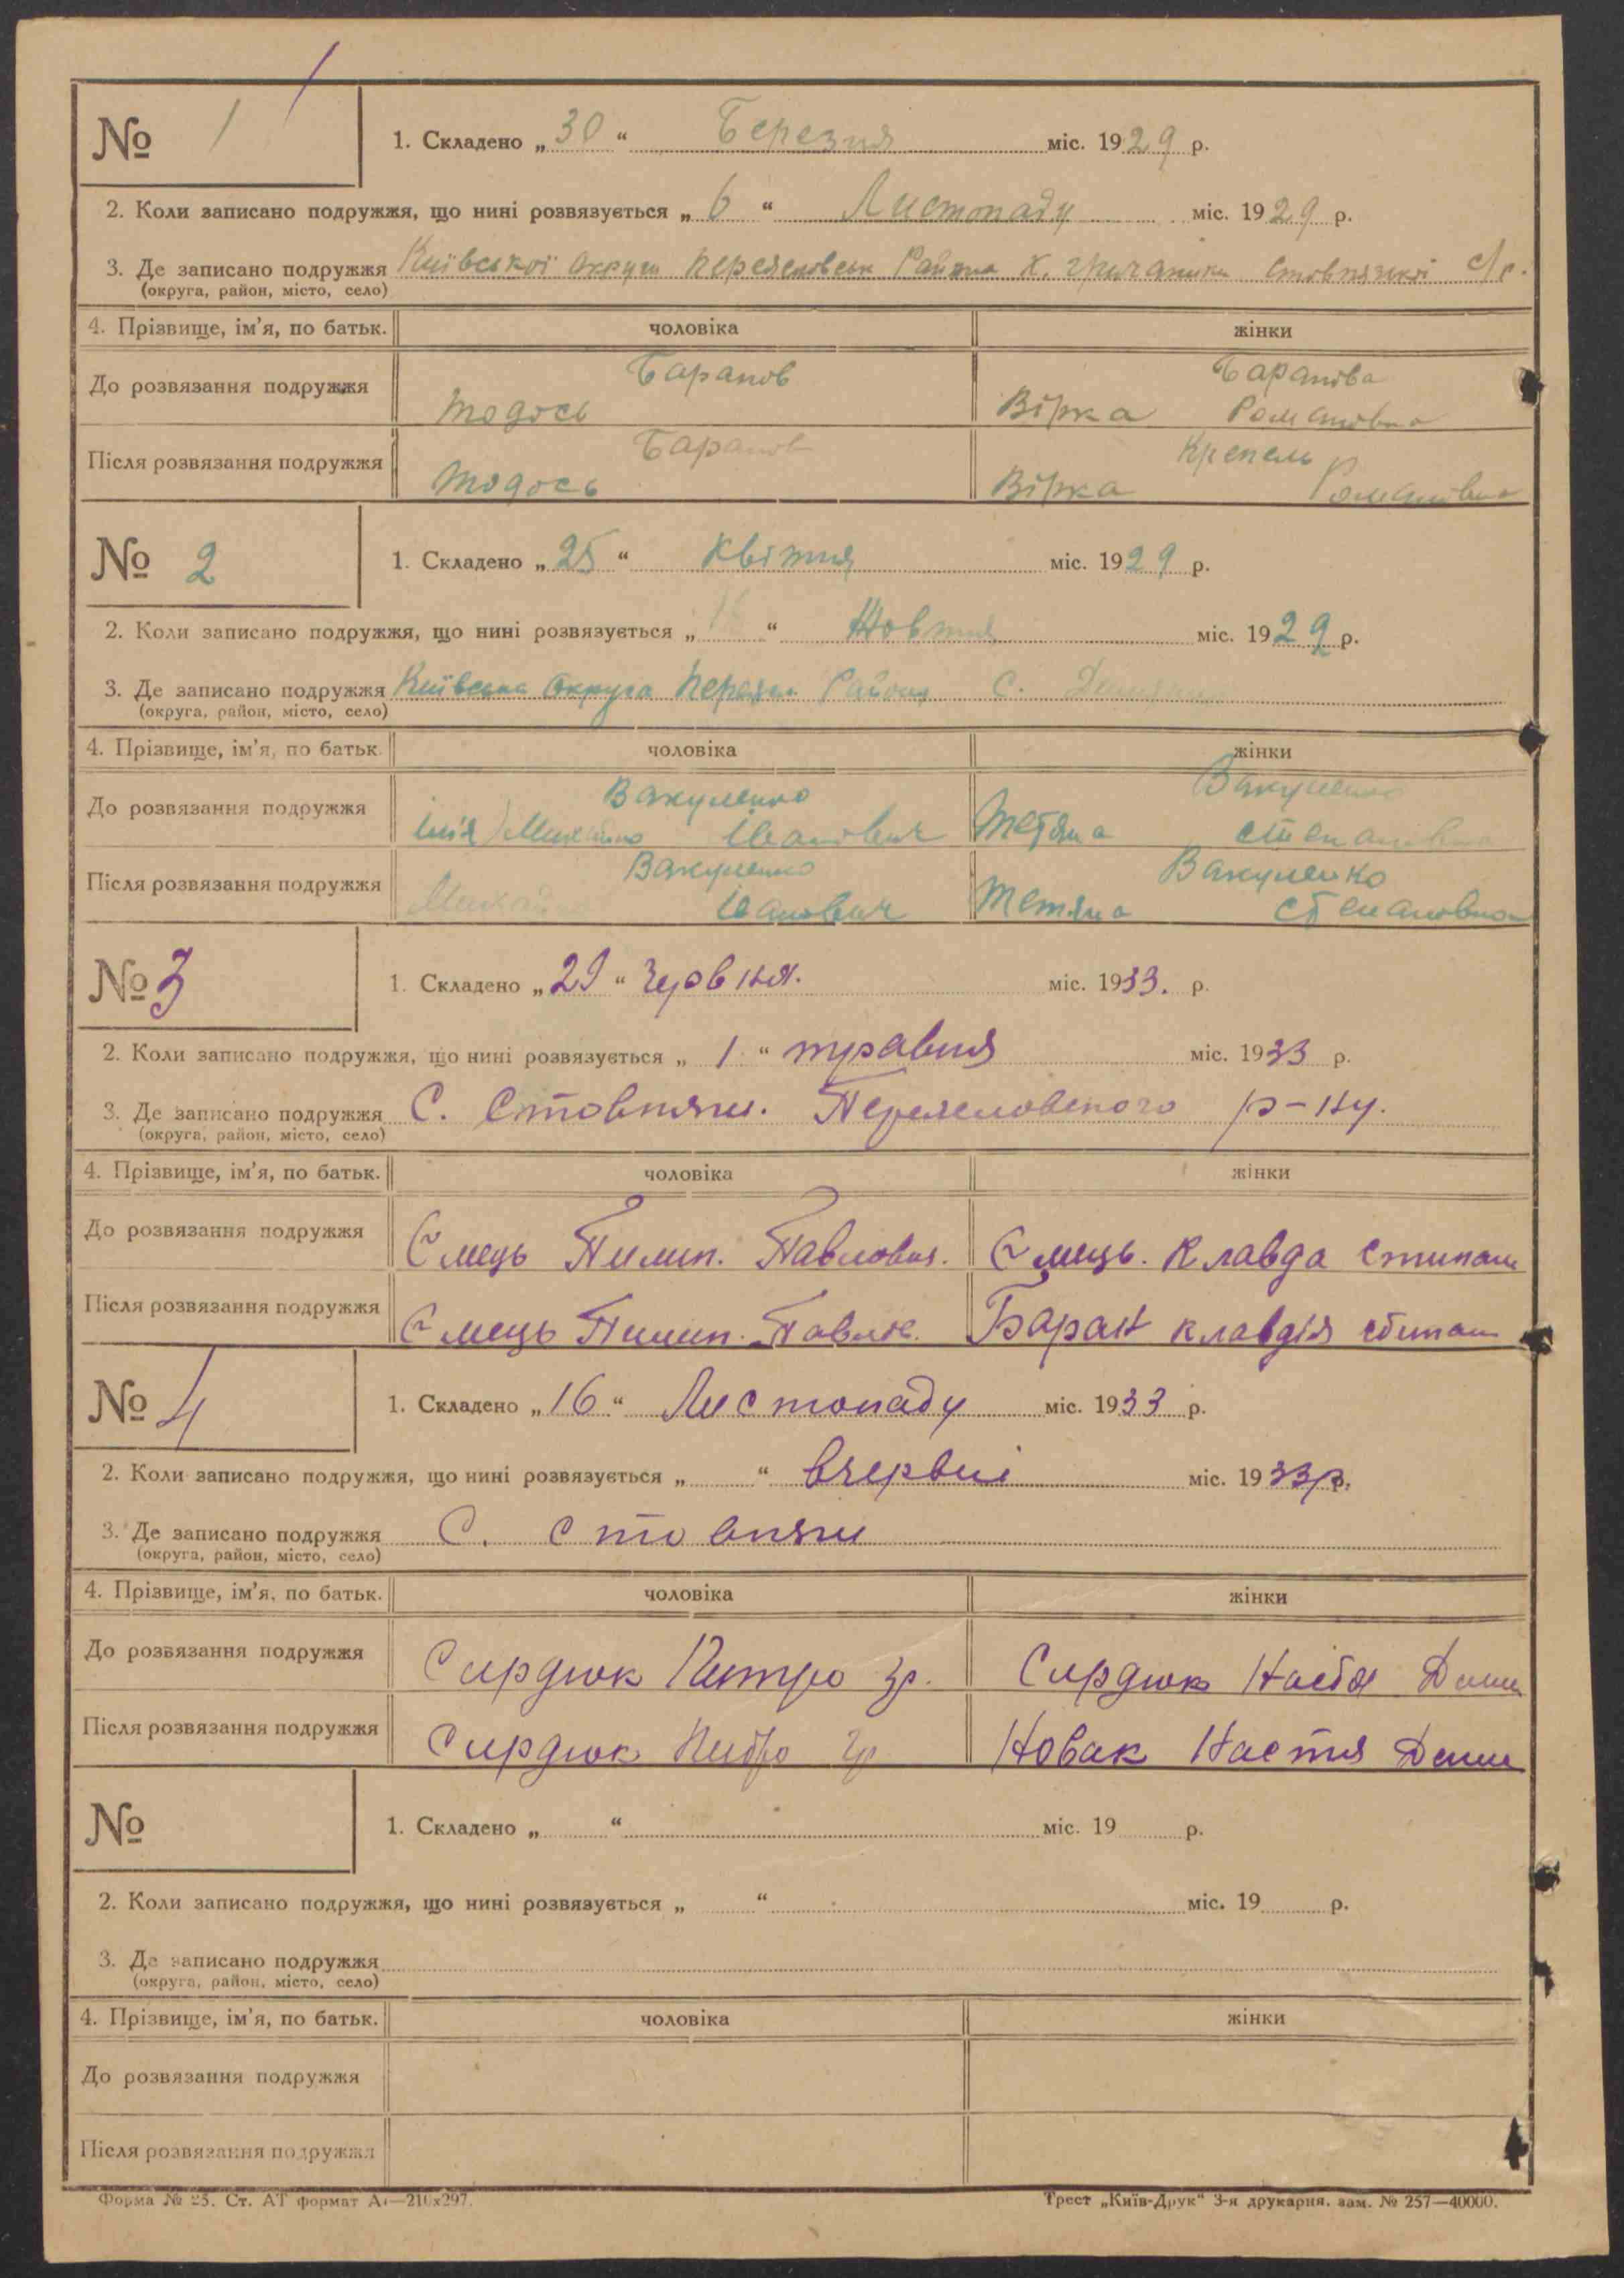 № 1
1. Складено „ 30 “ Березня міс. 1929 р.
2. Коли записано подружжя, що нині розвязується „ 6 “ Листопаду міс. 1929 р.
3. Де записано подружжя Київської округи Переяславськ Района х. с/с.
(округа, район, місто, село)
4. Прізвище, ім’я, по батьк. чоловіка жінки
До розвязання подружжя Баранов Баранова
Тодось Вірка Романовна
Після розвязання подружжя Баранов Крепель
Тодось Вірка Романівна
№ 2
1. Складено „ 25 “ Квітня міс. 1929 р.
2. Коли записано подружжя, що нині розвязується „ “ Жовтня міс. 1929 р.
3. Де записано подружжя Київська округа Района С.
(округа, район, місто, село)
4. Прізвище, ім’я, по батьк. чоловіка жінки
До розвязання подружжя Вакуленко Вакуленко
Михайло Іванович Тетяна Степановна
Після розвязання подружжя Вакуленко Вакуленко
Михайло Іванович Тетяна Степановна
№ 3
1. Складено „ 29 “ Червня. міс. 1933. р.
2. Коли записано подружжя, що нині розвязується „ 1. “ травня міс. 1933 р.
3. Де записано подружжя С. Стовпяги. Переясловського р-ну.
(округа, район, місто, село)
4. Прізвище, ім’я, по батьк. чоловіка жінки
До розвязання подружжя Ємець Пилип. Павлович. Ємець. Клавда Стипан
Після розвязання подружжя Ємець Пилип. Баран Клавдія стипан
№ 4
1. Складено „ 16 “ Листопаду міс. 1933 р.
2. Коли записано подружжя, що нині розвязується „ “ вчервні міс. 1933 р.
3. Де записано подружжя С. Стовпяги
(округа, район, місто, село)
4. Прізвище, ім’я, по батьк. чоловіка жінки
До розвязання подружжя Сирдюк Питро гр. Сирдюк Настя Деми
Після розвязання подружжя Сирдюк Питро гр Новак Настя Деми
№
1. Складено „ “ міс. 19 р.
2. Коли записано подружжя, що нині розвязується „ “ міс. 19 р.
3. Де записано подружжя
(округа, район, місто, село)
4. Прізвище, ім’я, по батьк. чоловіка жінки
До розвязання подружжя
Після розвязання подружжя
Форма № 25. Ст. АТ формат А4—210х297. Трест „Київ-Друк“ 3-я друкарня. зам. № 257—40000.